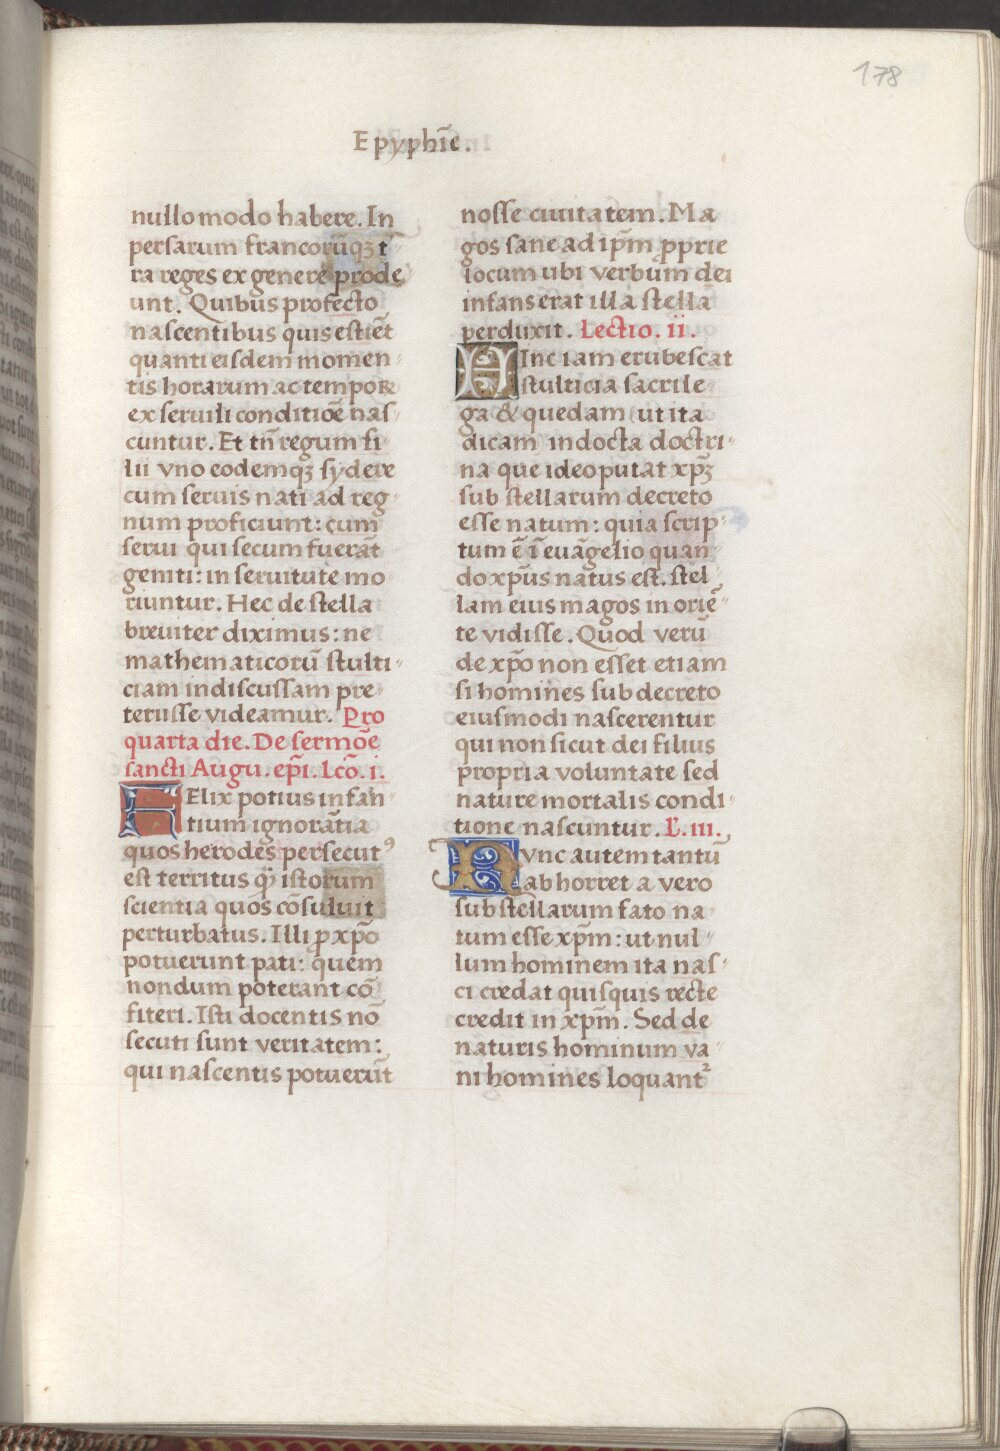 178
Epyphīe.
nullo modo habere. In
persarum francorūqꝫ t
ra reges ex genere prode
unt. Quibus profecto
nascentibus quis estiēt
quanti eisdem momen-
tis horarum ac tempore
ex seruili conditiōe nas-
cuntur. Et tn̄ regum fi-
lii vno eodemqꝫ sydere
cum seruis nati ad reg-
num proficiunt: cum
serui qui secum fuerāt
geniti: in seruitute mo-
riuntur. Hec de stella
breuiter diximus: ne
mathematicorū stulti-
ciam indiscussam pre-
teriisse videamur. Pro
quarta die. De sermōe
sancti Augu. ep̄i. Lcō. i.
FElix potius infan-
tium ignorātia
quos herodes persecutꝰ
est territus qͥ istorum
scientia quos cōsuluit
perturbatus. Illi ꝓ xp̄o
potuerunt pati: quem
nondum poterant cō-
fiteri. Isti docentis nō
secuti sunt veritatem:
qui nascentis potuerūt
nosse ciuitatem. Ma
gos sane ad ip̄m ꝓprie
locum ubi verbum dei
infans erat illa stella
perduxit. Lectio. ii.
HInc iam erubescat
stulticia sacrile-
ga & quedam (ut ita
dicam) indocta doctri-
na que ideo putat xp̄ꝫ
sub stellarum decreto
esse natum: quia scrip-
tum ē ī euāgelio quan-
do xp̄us natus est. stel-
lam eius magos in oriē-
te vidisse. Quod verū
de xp̄o non esset etiam
si homines sub decreto
eiusmodi nascerentur
qui non sicut dei filius
propria voluntate sed
nature mortalis condi-
tione nascuntur. L̄. iii.
NVnc autem tantū
abhorret a vero
sub stellarum fato na-
tum esse xp̄m: ut nul-
lum hominem ita nas-
ci credat quisquis recte
credit in xp̄m. Sed de
naturis hominum va-
ni homines loquant᷑